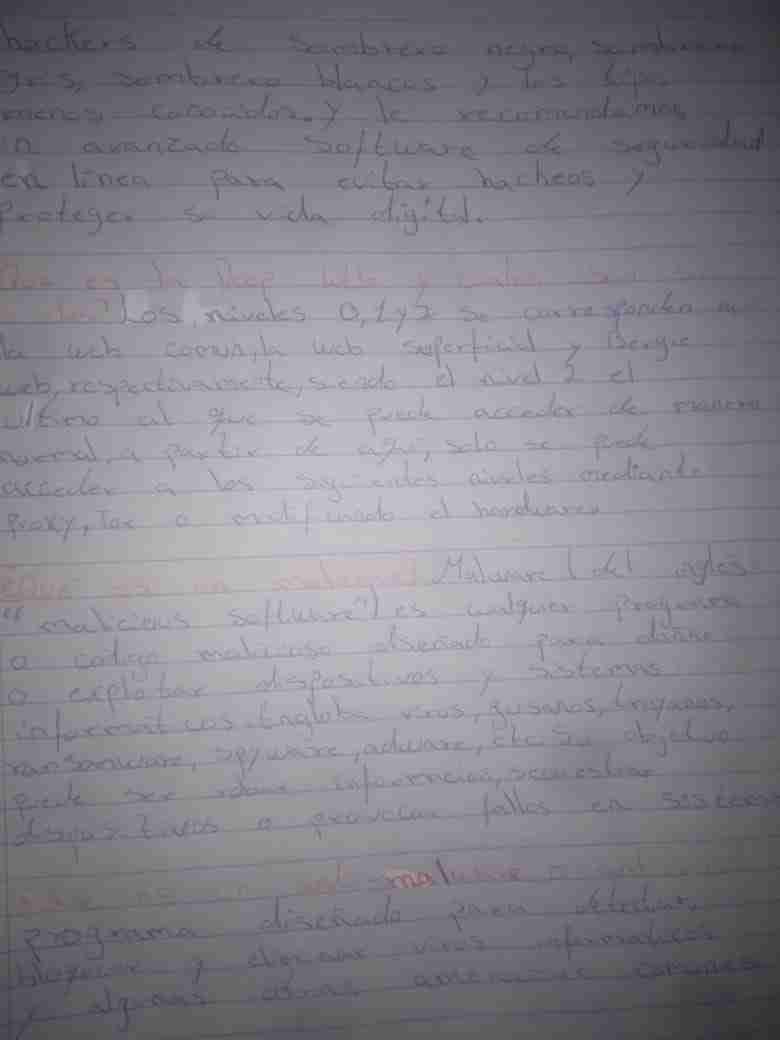 hackers de sombrero negro, sombrero
gris, sombrero blancos y los tipos
menos conocidos. y le recomendamos
un avanzado software de seguridad
en línea para evitar hackeos y
Proteger su vida digital.
Que es la Deep Web y cuales son
Los niveles 0, 1 y 2 se corresponden a
la web comun, la web superficial y Bergie
web, respectivamente, siendo el nivel 2 el
ultimo al que se puede acceder de manera
normal, a partir de aqui, solo se puede
acceder a los siguientes niveles mediante
Proxy, Tor o modificando el hardware.
¿Que es un malware? Malware (del ingles
"malicious software") es cualquier programa
o codigo malicioso diseñado para dañar
o explotar dispositivos y sistemas
informaticos. Engloba virus, gusanos, troyanos,
ransomware, spyware, adware, etc. Su objetivo
puede ser robar informacion, secuestrar
dispositivos o provocar fallos en sistemas
es un anti malware
programa diseñado para detectar,
bloquear y eliminar virus informaticos
y algunas otras amenazas comunes